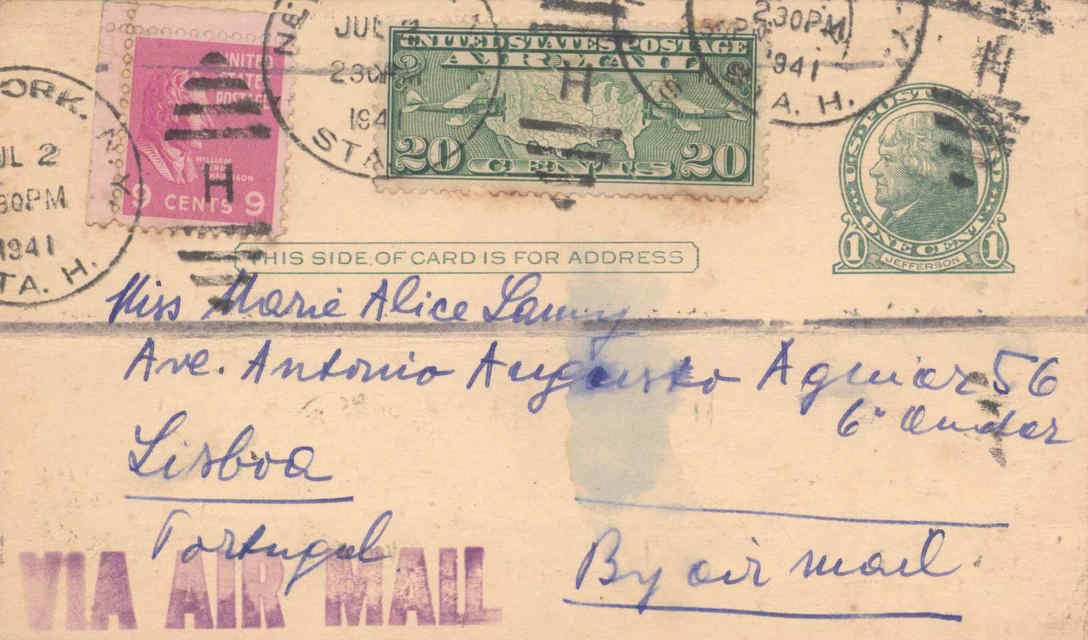 NE
YORK, N.Y.
JUL 2
2 30PM
1941
STA. H.
JUL 2
2 30PM
1941
STA. H.
2 30PM
1941
STA. H.
H
H
H
UNITED
STATES
POSTAGE
WILLIAM
HENRY
HARRISON
9 CENTS 9
UNITED STATES POSTAGE
AIR MAIL
20 CENTS 20
U.S. POSTAL CARD
1 ONE CENT 1
JEFFERSON
THIS SIDE OF CARD IS FOR ADDRESS
Miss Marie Alice
Ave. Antonio Augusto Aguiar 56
6º Andar
Lisboa
Portugal
By air mail.
VIA AIR MAIL